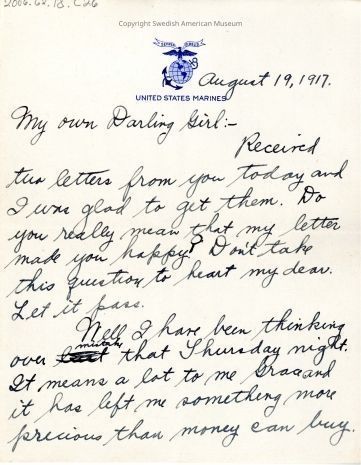 2006.62.18.C26
Copyright Swedish American Museum
SEMPER FIDELIS
August 19, 1917.
UNITED STATES MARINES
My own Darling Girl:-
Received
two letters from you today and
I was glad to get them. Do
you really mean that my letter
made you happy? Don't take
this question to heart my dear.
Let it pass.
Well I have been thinking
over that Thursday night.
It means a lot to me Grace and
it has left me something more
precious than money can buy.